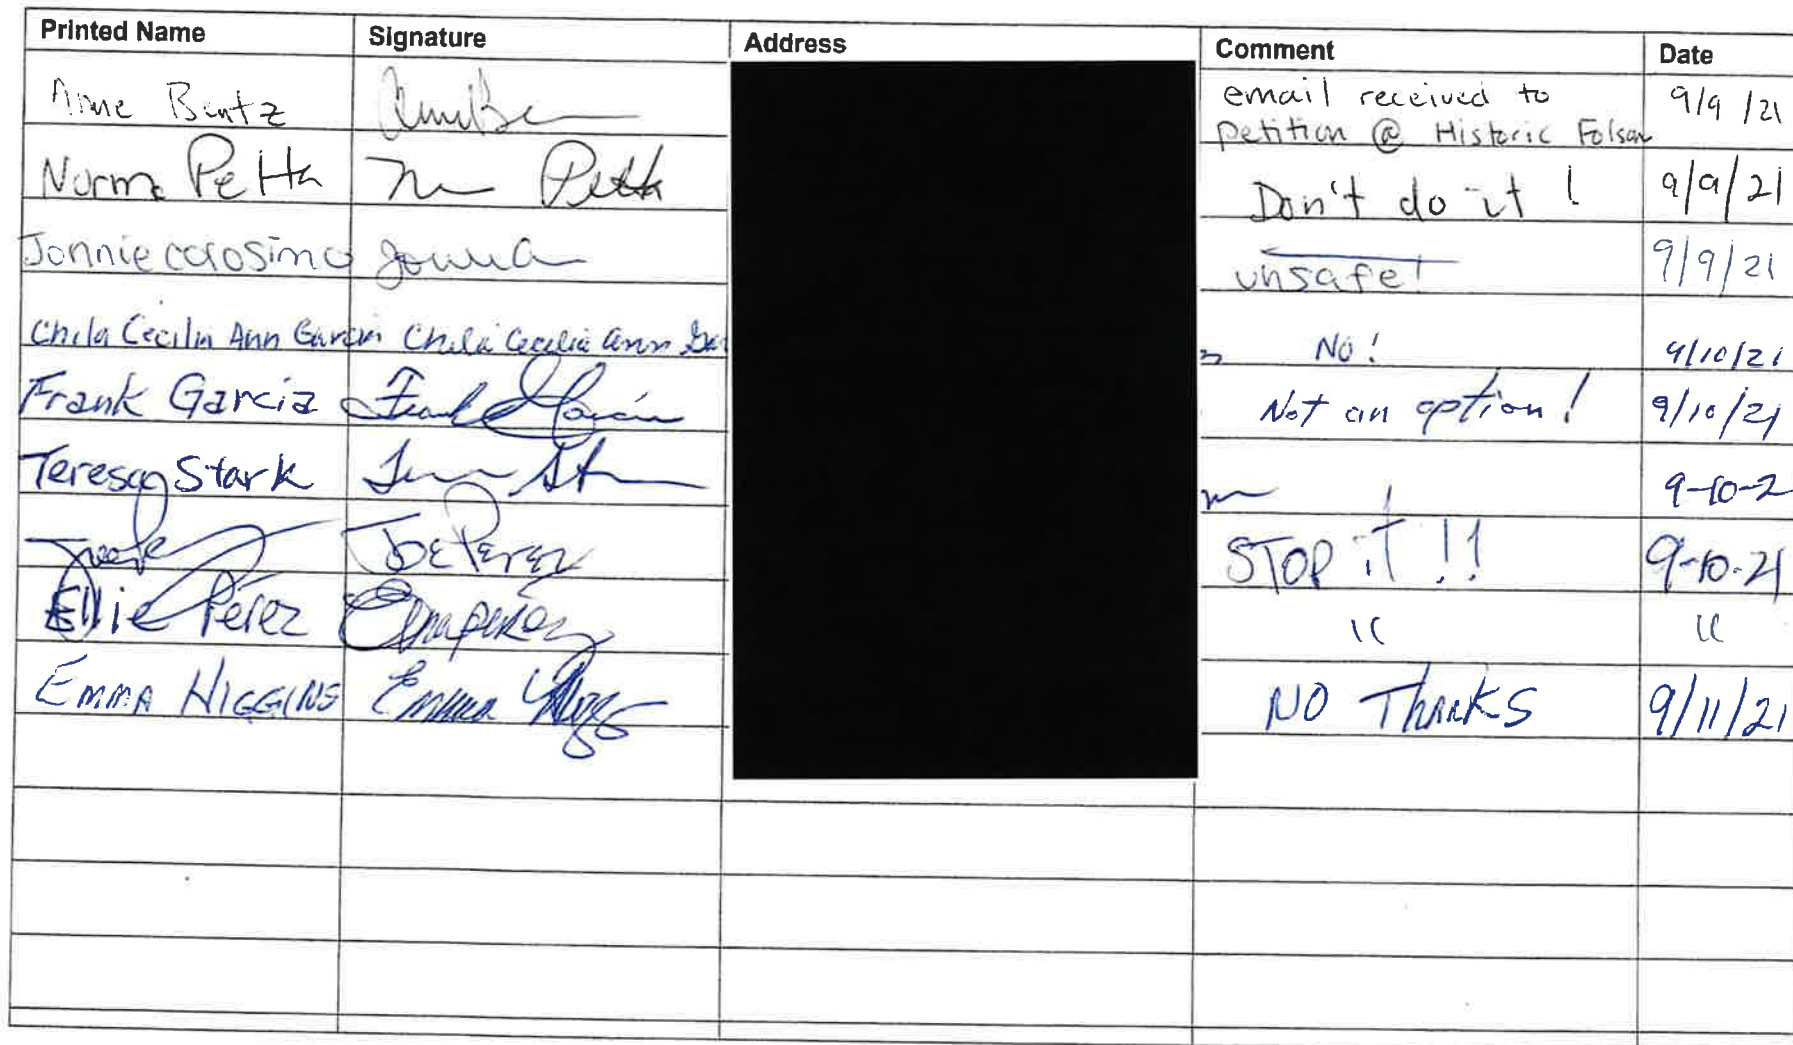 Printed Name Signature Address Comment Date
Anne Bentz email received to 9/9/21
petition @ Historic Folsom
Norma Petta Petta Don't do it! 9/9/21
Jonnie Colosimo unsafe! 9/9/21
Chila Cecilia Ann Garcia Chila Cecilia Ann Gar No! 9/10/21
Frank Garcia Frank Garcia Not an option! 9/10/21
Teresa Stark 9-10-2
Joe Perez STOP it!! 9-10-21
Ellie Perez " "
EMMA HIGGINS Emma NO ThankS 9/11/21